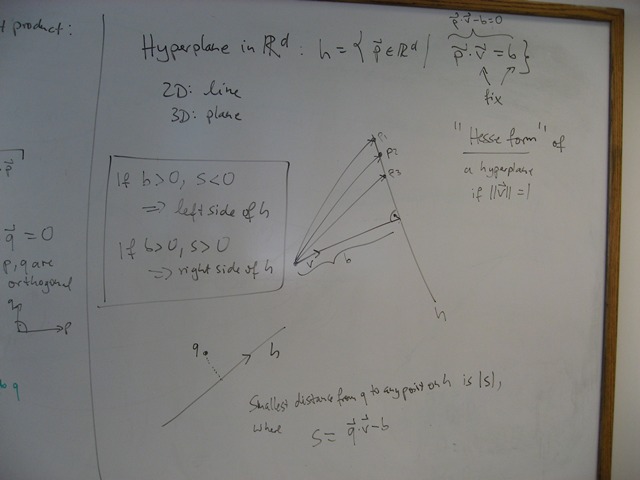 t product:
p⃗
q⃗ = 0
p, q are
orthogonal
q
p
q
p⃗·v⃗-b=0
Hyperplane in ℝᵈ: h = { p⃗ ∈ ℝᵈ | p⃗·v⃗ = b }
fix
2D: line
3D: plane
"Hesse form" of
a hyperplane
if ||v⃗|| = 1
If b>0, s<0
⇒ left side of h
If b>0, s>0
⇒ right side of h
p1
p2
p3
v
b
h
q
h
Smallest distance from q to any point on h is |s|,
where s = q⃗·v⃗-b